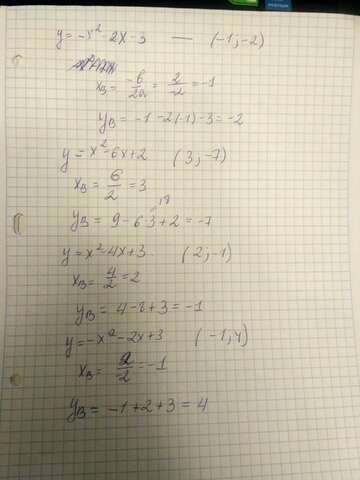 y = -x² - 2x - 3 — (-1; -2)
xв = -б/2a = 2/-2 = -1
yв = -1 - 2·(-1) - 3 = -2
y = x² - 6x + 2 (3; -7)
xв = 6/2 = 3
18
yв = 9 - 6·3 + 2 = -7
y = x² - 4x + 3 (2; -1)
xв = 4/2 = 2
yв = 4 - 8 + 3 = -1
y = -x² - 2x + 3 (-1; 4)
xв = 2/2 = -1
yв = -1 + 2 + 3 = 4